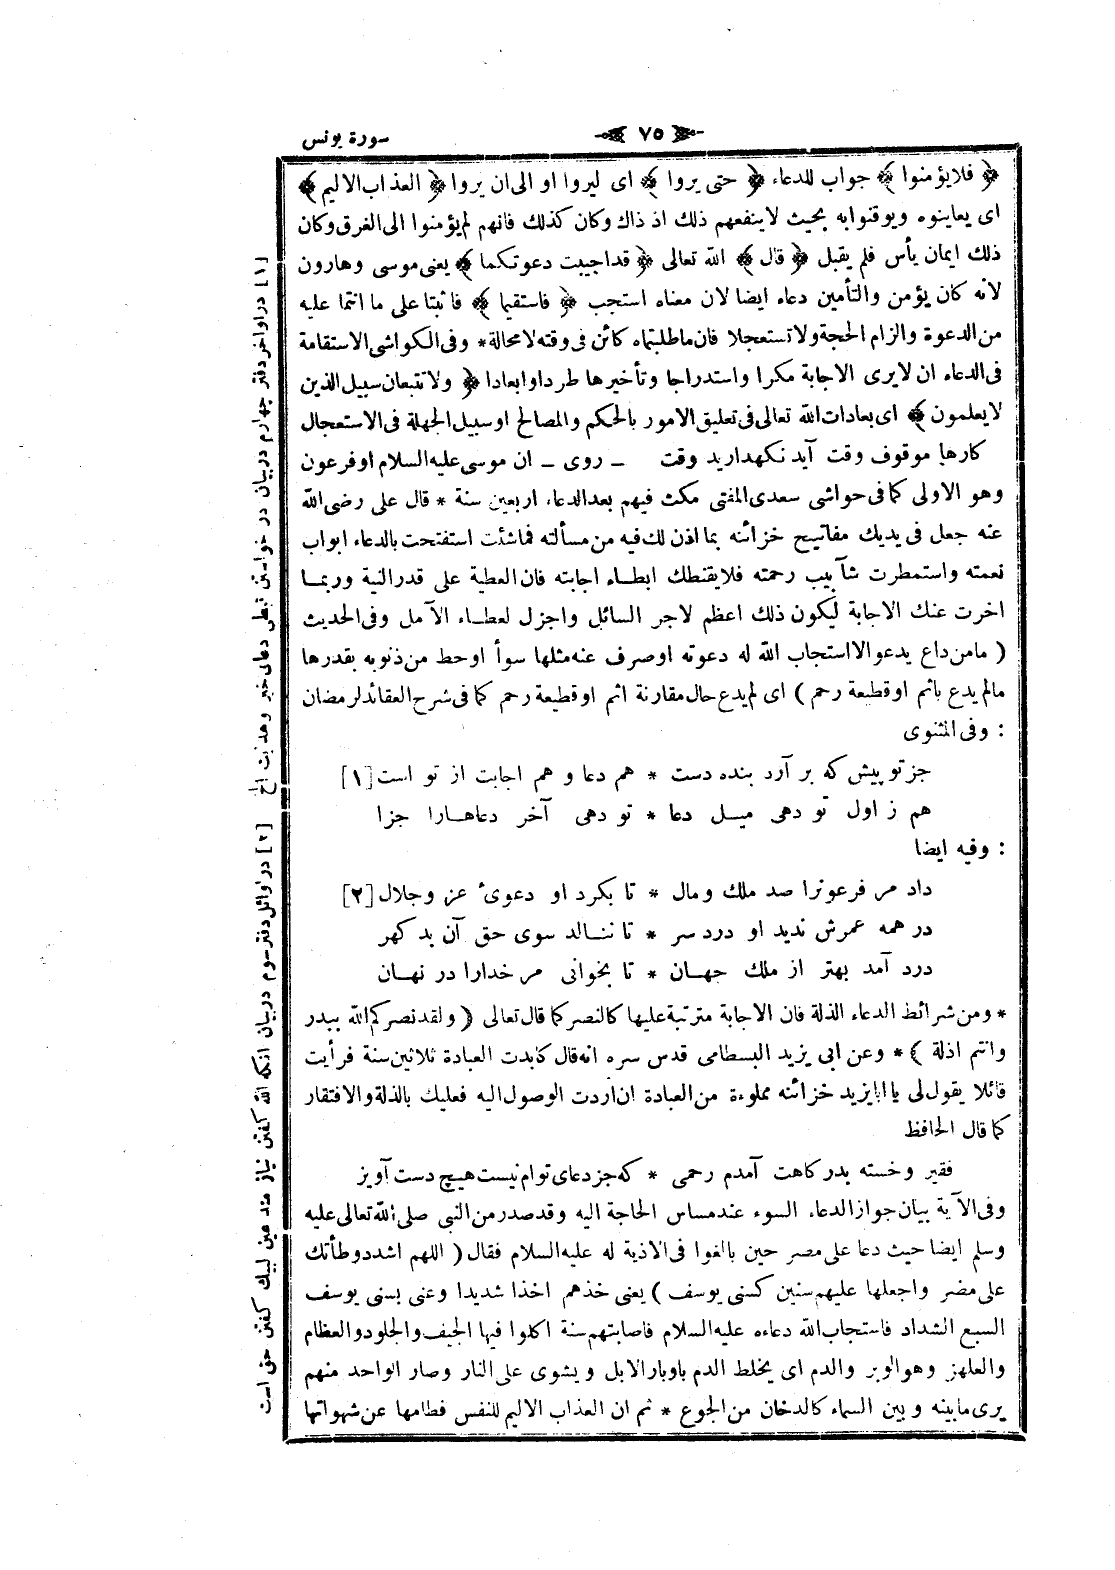 سورة يونس
٧٥
﴿ فلايؤمنوا ﴾ جواب للدعاء ﴿ حتى يروا ﴾ اى ليروا او الى ان يروا ﴿ العذاب الاليم ﴾
اى يعاينوه ويوقنوا به بحيث لاينفعهم ذلك اذ ذاك وكان كذلك فانهم لم يؤمنوا الى الغرق وكان
ذلك ايمان يأس فلم يقبل ﴿ قال ﴾ الله تعالى ﴿ قداجيبت دعوتكما ﴾ يعنى موسى وهارون
لانه كان يؤمن والتأمين دعاء ايضا لان معناه استجب ﴿ فاستقيما ﴾ فاثبتا على ما انتما عليه
من الدعوة والزام الحجة ولاتستعجلا فان ماطلبتماه كائن فى وقته لامحالة * وفى الكواشى الاستقامة
فى الدعاء ان لايرى الاجابة مكرا واستدراجا وتأخيرها طردا وابعادا ﴿ ولاتتبعان سبيل الذين
لايعلمون ﴾ اى بعادات الله تعالى فى تعليق الامور بالحكم والمصالح او سبيل الجهلة فى الاستعجال
كارها موقوف وقت آيد نكهداريد وقت ـ روى ـ ان موسى عليه السلام او فرعون
وهو الاولى كما فى حواشى سعدى المفتى مكث فيهم بعد الدعاء اربعين سنة * قال على رضى الله
عنه جعل فى يديك مفاتيح خزائنه بما اذن لك فيه من مسألته فماشئت استفتحت بالدعاء ابواب
نعمته واستمطرت شآبيب رحمته فلايقنطك ابطاء اجابته فان العطية على قدر النية وربما
اخرت عنك الاجابة ليكون ذلك اعظم لاجر السائل واجزل لعطاء الآمل وفى الحديث
( مامن داع يدعو الا استجاب الله له دعوته او صرف عنه مثلها سوأ او حط من ذنوبه بقدرها
مالم يدع باثم او قطيعة رحم ) اى لم يدع حال مقارنة اثم او قطيعة رحم كما فى شرح العقائد لرمضان
: وفى المثنوى
جز تو پيش كه بر آرد بنده دست * هم دعا و هم اجابت از تو است [١]
هم ز اول تو دهى ميل دعا * تو دهى آخر دعاهارا جزا
: وفيه ايضا
داد مر فرعونرا صد ملك ومال * تا بكرد او دعوئ عز وجلال [٢]
در همه عمرش نديد او درد سر * تا ننالد سوى حق آن بد كهر
درد آمد بهتر از ملك جهان * تا بخوانى مر خدارا در نهان
* ومن شرائط الدعاء الذلة فان الاجابة مترتبة عليها كالنصر كما قال تعالى ( ولقد نصركم الله ببدر
وانتم اذلة ) * وعن ابى يزيد البسطامى قدس سره انه قال كابدت العبادة ثلاثين سنة فرأيت
قائلا يقول لى يا ابا يزيد خزائنه مملوءة من العبادة ان اردت الوصول اليه فعليك بالذلة والافتقار
كما قال الحافظ
فقير وخسته بدركاهت آمدم رحمى * كه جز دعاى توام نيست هيچ دست آويز
وفى الآية بيان جواز الدعاء السوء عند مساس الحاجة اليه وقد صدر من النبى صلى الله تعالى عليه
وسلم ايضا حيث دعا على مضر حين بالغوا فى الاذية له عليه السلام فقال ( اللهم اشدد وطأتك
على مضر واجعلها عليهم سنين كسنى يوسف ) يعنى خذهم اخذا شديدا وعنى بسنى يوسف
السبع الشداد فاستجاب الله دعاءه عليه السلام فاصابتهم سنة اكلوا فيها الجيف والجلود والعظام
والعلهز وهو الوبر والدم اى يخلط الدم باوبار الابل ويشوى على النار وصار الواحد منهم
يرى مابينه وبين السماء كالدخان من الجوع * ثم ان العذاب الاليم للنفس فطامها عن شهواتها
[١] در اواخر دفتر چهارم در بيان در خواستن قبطى دعاى خير وهدايت الخ
[٢] در اوائل دفتر سوم در بيان آنكه الله كفتن نياز مند عين لبيك كفتن حق است